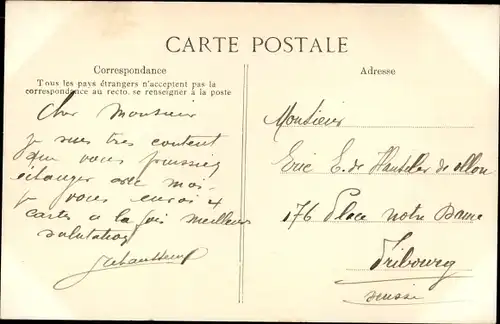 CARTE POSTALE
Correspondance
Tous les pays étrangers n'acceptent pas la
correspondance au recto. se renseigner à la poste
Cher Monsieur
je suis très content
que vous puissiez
échanger avec moi
je vous envoi 4
cartes a la fois meilleurs
salutations
Adresse
Monsieur
Eric E. de
176 Place notre Dame
Fribourg
suisse